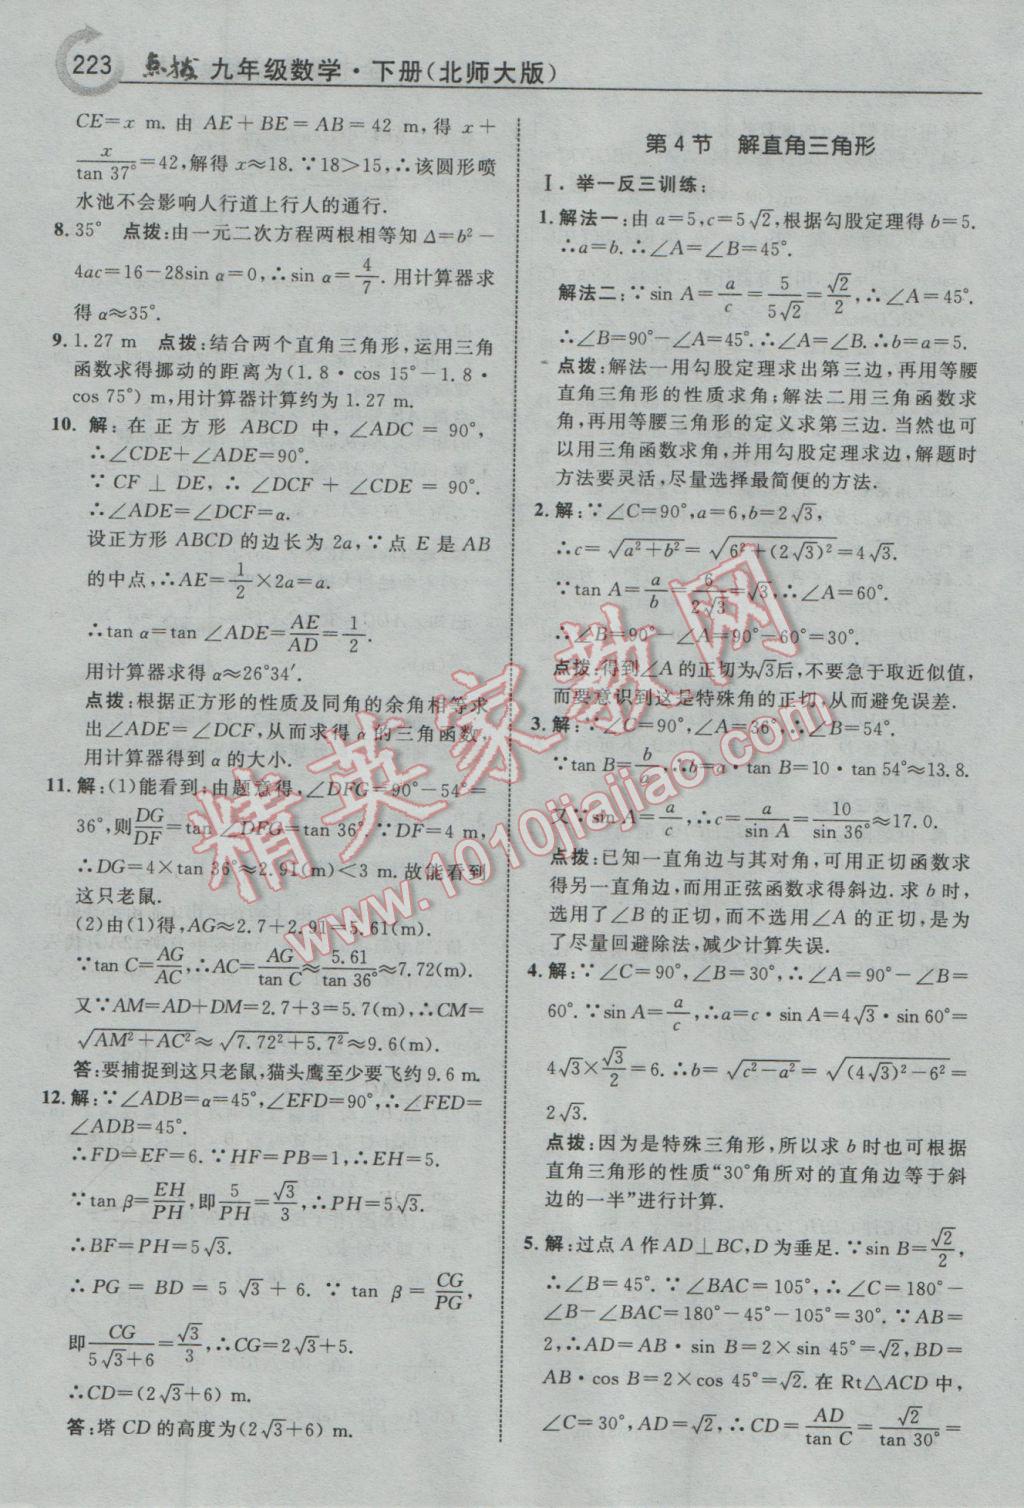 223 点拨 九年级数学·下册(北师大版)
CE=x m. 由 AE+BE=AB=42 m, 得 x+
x/tan 37°=42, 解得 x≈18. ∵18>15, ∴该圆形喷
水池不会影响人行道上行人的通行.
8. 35° 点拨:由一元二次方程两根相等知 Δ=b²-
4ac=16-28sin α=0, ∴sin α=4/7. 用计算器求
得 α≈35°.
9. 1.27 m 点拨:结合两个直角三角形,运用三角
函数求得挪动的距离为(1.8·cos 15°-1.8·
cos 75°) m,用计算器计算约为 1.27 m.
10. 解: 在正方形 ABCD 中, ∠ADC = 90°,
∴∠CDE+∠ADE=90°.
∵ CF ⊥ DE, ∴ ∠DCF + ∠CDE = 90°.
∴∠ADE=∠DCF=α.
设正方形 ABCD 的边长为 2a, ∵点 E 是 AB
的中点, ∴AE=1/2×2a=a.
∴tan α=tan ∠ADE=AE/AD=1/2.
用计算器求得 α≈26°34′.
点拨:根据正方形的性质及同角的余角相等求
出∠ADE=∠DCF,从而求得 α 的三角函数,
用计算器得到 α 的大小.
11. 解:(1)能看到:由题意得,∠DFG=90°-54°=
36°,则DG/DF=tan ∠DFG=tan 36°. ∵DF=4 m,
∴DG=4×tan 36°≈2.91(m)<3 m. 故能看到
这只老鼠.
(2)由(1)得, AG≈2.7+2.91=5.61(m).
∵tan C=AG/AC, ∴AC=AG/tan C≈5.61/tan 36°≈7.72(m).
又∵AM=AD+DM=2.7+3=5.7(m). ∴CM=
√(AM²+AC²)≈√(7.72²+5.7²)≈9.6(m).
答:要捕捉到这只老鼠,猫头鹰至少要飞约 9.6 m.
12. 解:∵∠ADB=α=45°,∠EFD=90°,∴∠FED=
∠ADB=45°.
∴FD=EF=6. ∵HF=PB=1, ∴EH=5.
∵tan β=EH/PH,即5/PH=√3/3, ∴PH=5√3.
∴BF=PH=5√3.
∴ PG = BD = 5√3 + 6. ∵ tan β = CG/PG,
即CG/(5√3+6)=√3/3, ∴CG=2√3+5.
∴CD=(2√3+6) m.
答:塔 CD 的高度为(2√3+6) m.
第 4 节 解直角三角形
Ⅰ. 举一反三训练:
1. 解法一:由 a=5, c=5√2,根据勾股定理得 b=5.
∴a=b. ∴∠A=∠B=45°.
解法二:∵sin A=a/c=5/(5√2)=√2/2, ∴∠A=45°.
∴∠B=90°-∠A=45°. ∴∠A=∠B. ∴b=a=5.
点拨:解法一用勾股定理求出第三边,再用等腰
直角三角形的性质求角;解法二用三角函数求
角,再用等腰三角形的定义求第三边. 当然也可
以用三角函数求角,并用勾股定理求边,解题时
方法要灵活,尽量选择最简便的方法.
2. 解:∵∠C=90°, a=6, b=2√3,
∴c=√(a²+b²)=√(6²+(2√3)²)=4√3.
∵tan A=a/b=6/(2√3)=√3, ∴∠A=60°.
∴∠B=90°-∠A=90°-60°=30°.
点拨:得到∠A的正切为√3后,不要急于取近似值,
而要意识到这是特殊角的正切,从而避免误差.
3. 解:∵∠C=90°,∠A=36°,∴∠B=54°.
∵tan B=b/a, ∴b=a·tan B=10·tan 54°≈13.8.
又∵sin A=a/c, ∴c=a/sin A=10/sin 36°≈17.0.
点拨:已知一直角边与其对角,可用正切函数求
得另一直角边,而用正弦函数求得斜边. 求 b 时,
选用了∠B的正切,而不选用∠A的正切,是为
了尽量回避除法,减少计算失误.
4. 解:∵∠C=90°,∠B=30°,∴∠A=90°-∠B=
60°. ∵sin A=a/c, ∴a=c·sin A=4√3·sin 60°=
4√3×√3/2=6. ∴b=√(c²-a²)=√((4√3)²-6²)=
2√3.
点拨:因为是特殊三角形,所以求 b 时也可根据
直角三角形的性质“30°角所对的直角边等于斜
边的一半”进行计算.
5. 解:过点 A 作 AD⊥BC,D 为垂足. ∵sin B=√2/2,
∴∠B=45°. ∵∠BAC=105°, ∴∠C=180°-
∠B-∠BAC=180°-45°-105°=30°. ∵AB=
2,∴AD=AB·sin B=2×sin 45°=√2, BD=
AB·cos B=2×cos 45°=√2. 在 Rt△ACD 中,
∠C=30°, AD=√2, ∴CD=AD/tan C=√2/tan 30°=
精英家教网
www.1010jiajiao.com